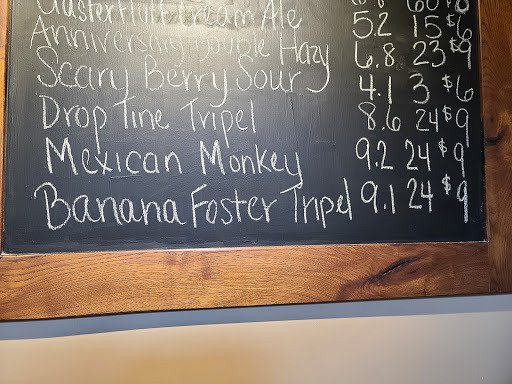 Cream Ale 5.2 15 $6
Anniversary Double Hazy 6.8 23 $9
Scary Berry Sour 4.1 3 $6
Drop Tine Tripel 8.6 24 $9
Mexican Monkey 9.2 24 $9
Banana Foster Tripel 9.1 24 $9